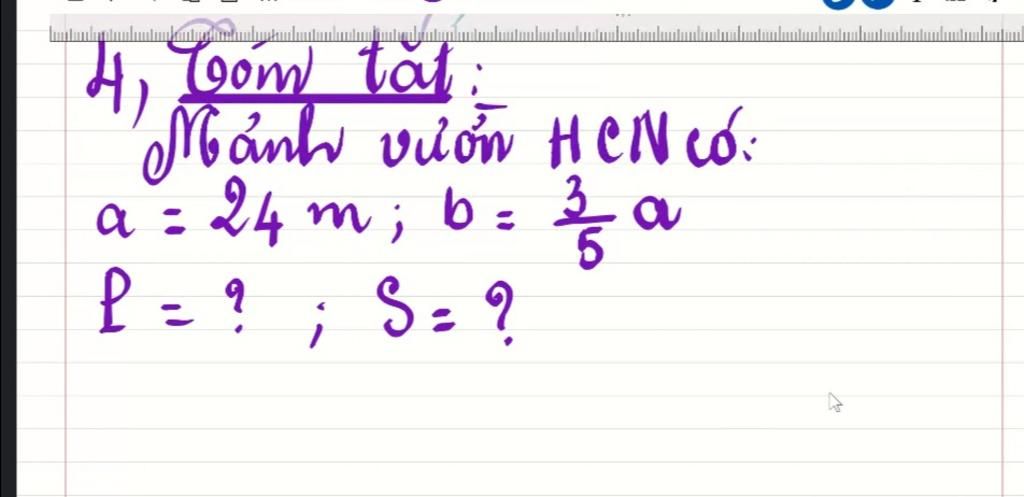 4, Tóm tắt:
Mảnh vườn HCN có:
a = 24 m ; b = 3/5 a
P = ? ; S = ?